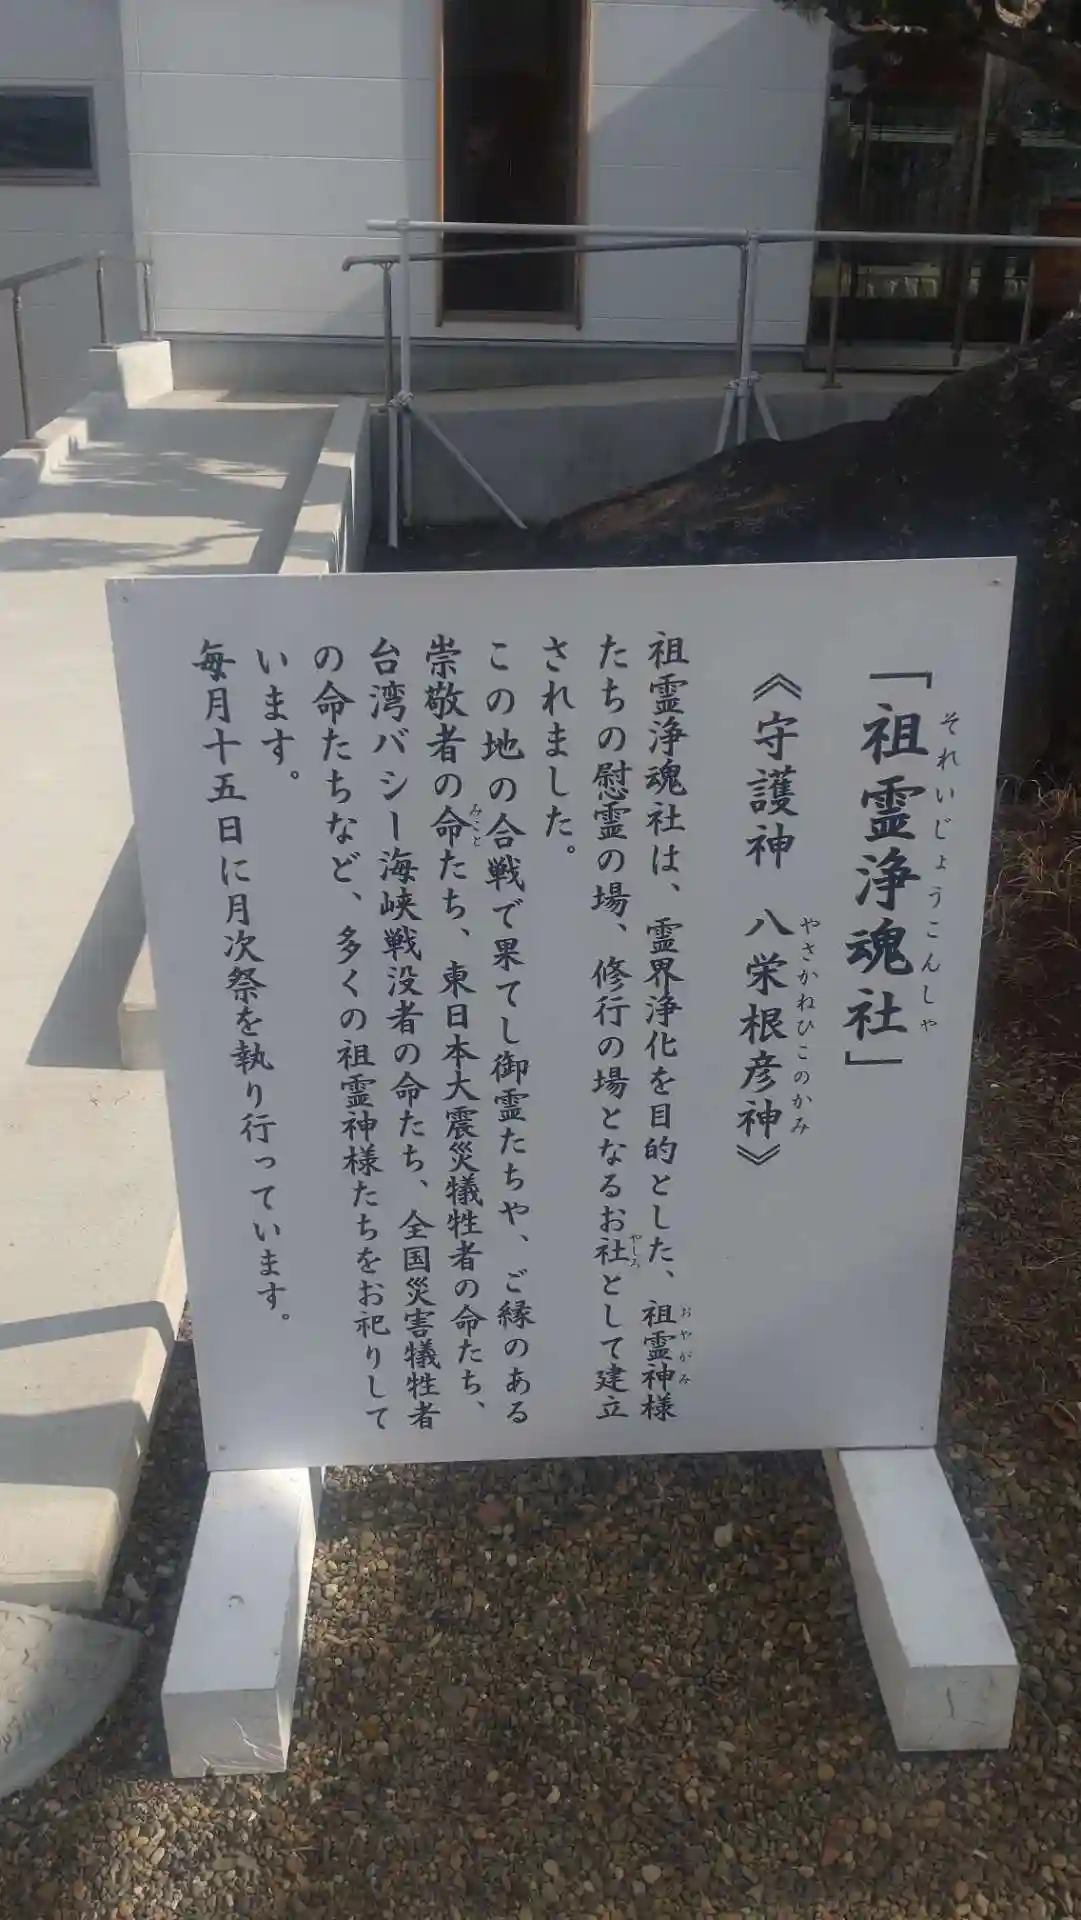 「祖霊浄魂社」
それいじょうこんしゃ
《守護神　八栄根彦神》
やさかねひこのかみ
祖霊浄魂社は、霊界浄化を目的とした、祖霊神様
おやがみ
たちの慰霊の場、修行の場となるお社として建立
やしろ
されました。
この地の合戦で果てし御霊たちや、ご縁のある
崇敬者の命たち、東日本大震災犠牲者の命たち、
みこと
台湾バシー海峡戦没者の命たち、全国災害犠牲者
の命たちなど、多くの祖霊神様たちをお祀りして
います。
毎月十五日に月次祭を執り行っています。